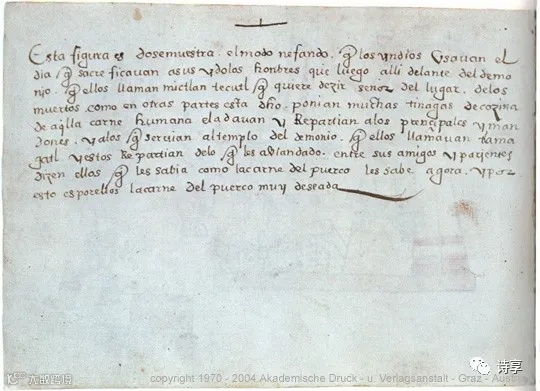 Esta figura es dosemuestra. el modo nefando. q̃ los yndios Usauan el
dia q̃ sacreficauan asus ydolos honbres que luego alli delante del demo
nio. q̃ ellos llaman mictlan tecutl q̃ quiere dezir señor del lugar. delos
muertos como en otras partes esta dho, ponian muchas tinagas de cozina
de aq̃lla carne humana eladauan y Repartian alos prençipales ymann
dones. yalos q̃ seruian altemplo del demonio. q̃ ellos llamauan tama
gatl yestos Repartian delo q̃ les avlandado. entre sus amigos yparientes
dizen ellos q̃ les sabia como lacarne del puerco les sabe agora. ypor
esto es porellos lacarne del puerco muy deseada
大成跨境
copyright 1970 - 2004 Akademische Druck - u. Verlagsanstalt - Graz, Aus
诗享